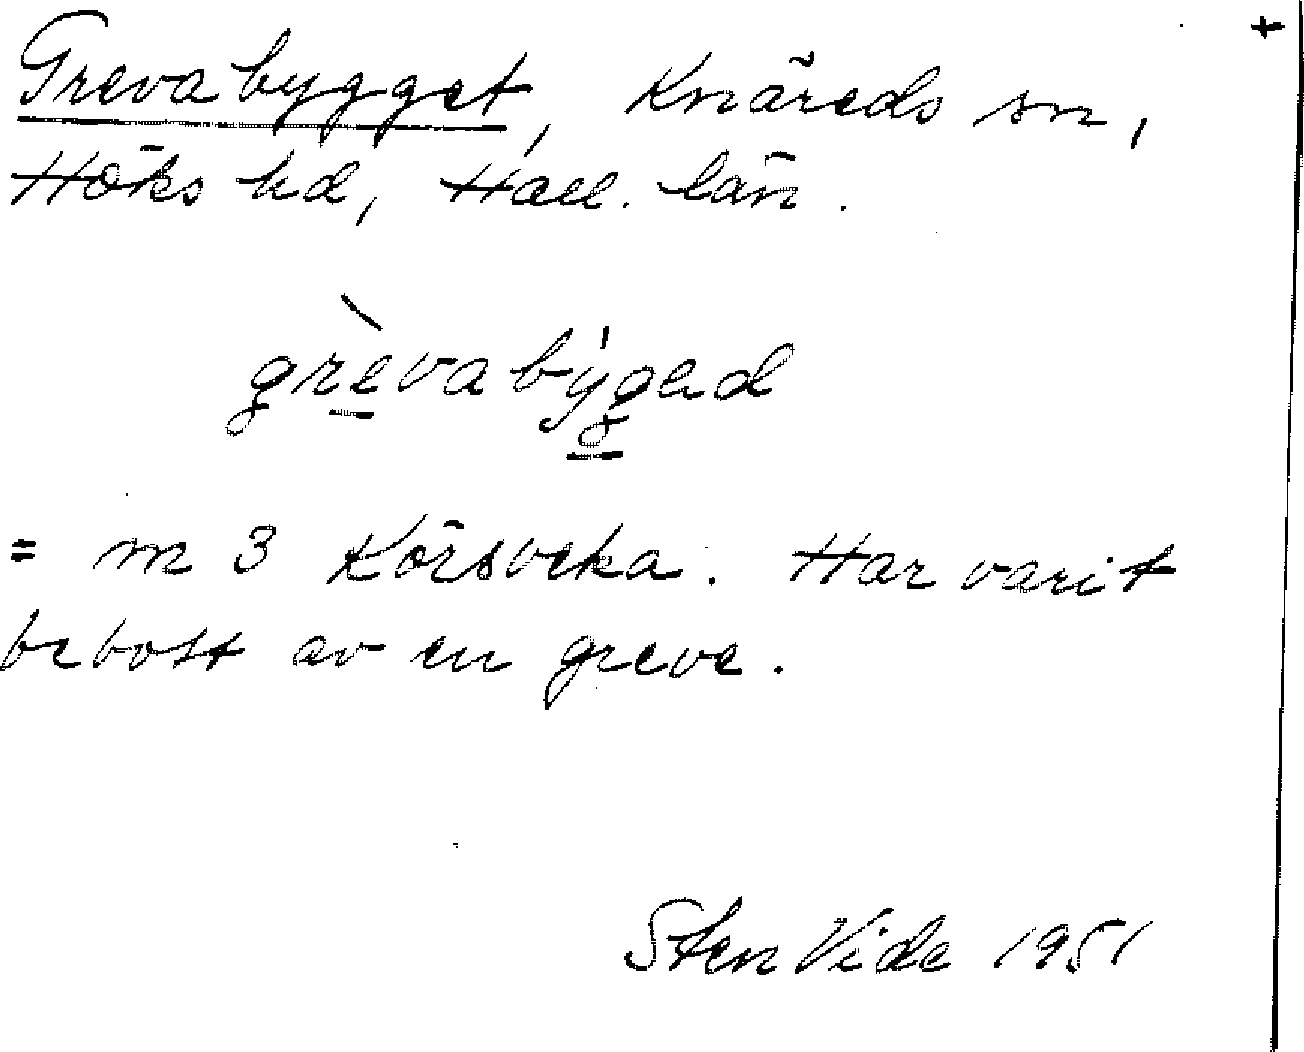 +
Grevabygget, Knäreds sn,
Höks hd, Hall. län.
grèvabýgad
= m 3 Körsveka. Har varit
bebott av en greve.
Sten Vide 1951